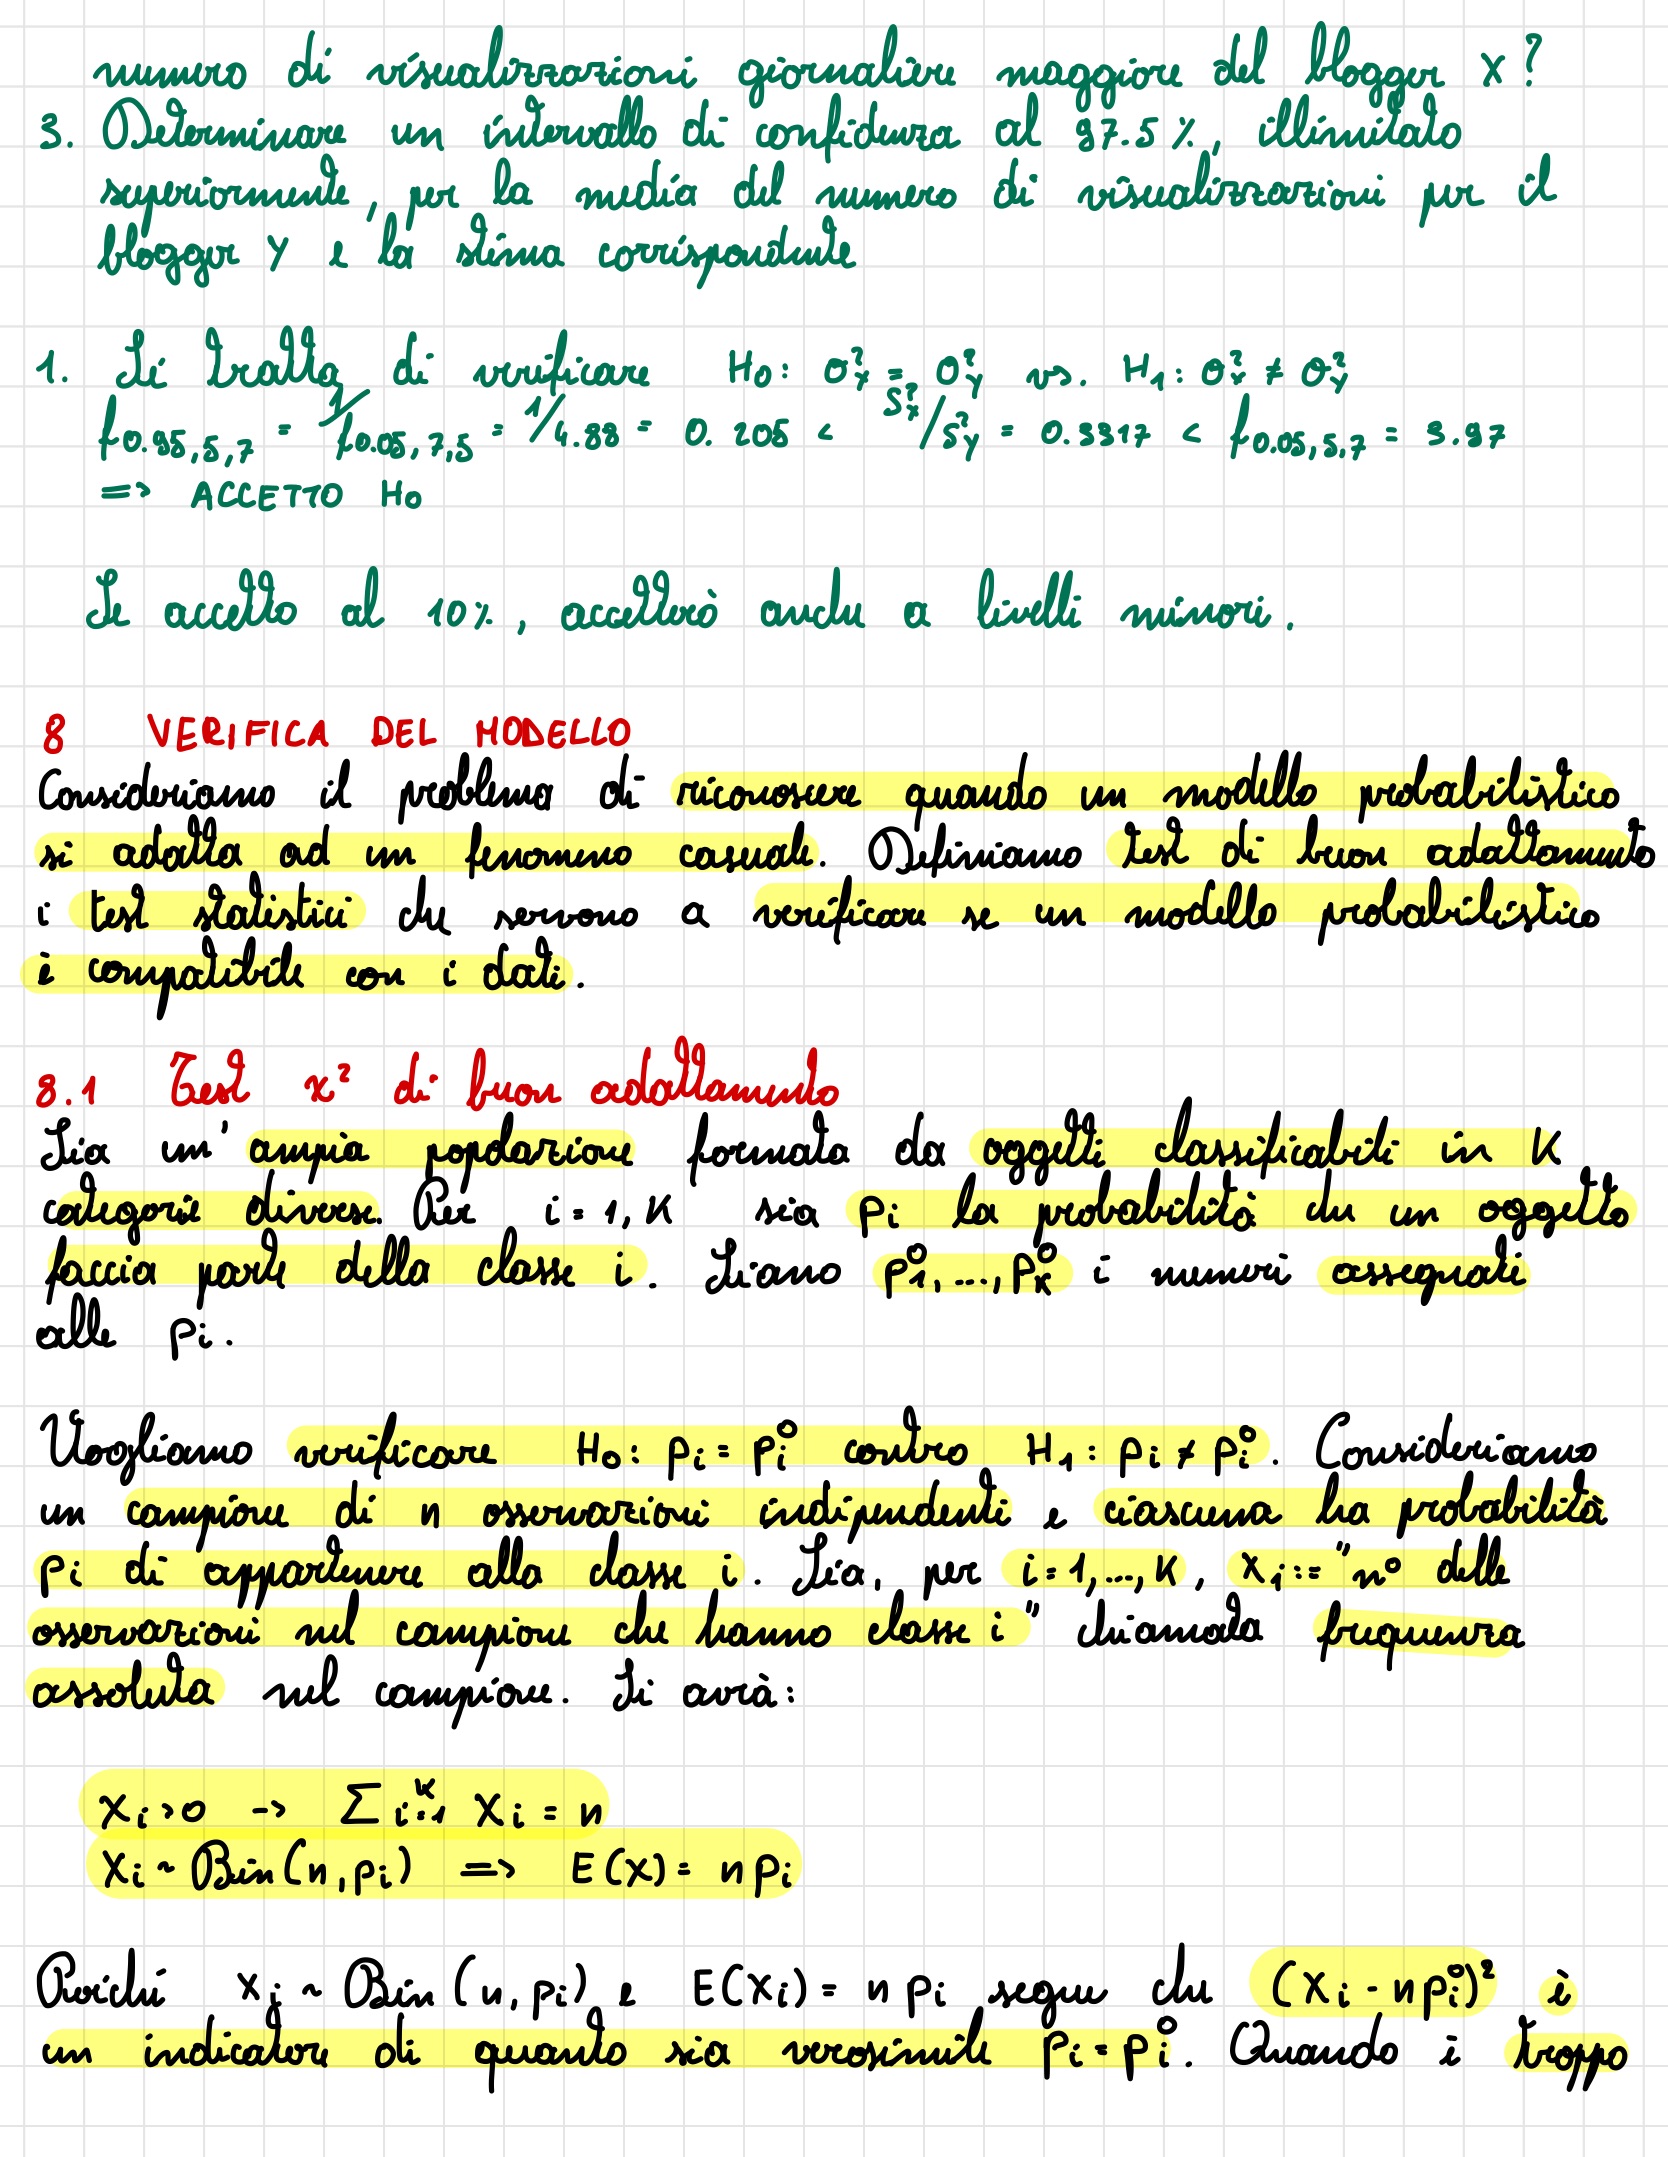 numero di visualizzazioni giornaliere maggiore del blogger X?
3. Determinare un intervallo di confidenza al 97.5%, illimitato
superiormente, per la media del numero di visualizzazioni per il
blogger Y e la stima corrispondente
1. Si tratta di verificare H₀: σ²ₓ = σ²ᵧ vs. H₁: σ²ₓ ≠ σ²ᵧ
f0.95,5,7 = 1/f0.05,7,5 = 1/4.88 = 0.205 < S²ₓ/S²ᵧ = 0.3317 < f0.05,5,7 = 3.97
=> ACCETTO H₀
Se accetto al 10%, accetterò anche a livelli minori.
8 VERIFICA DEL MODELLO
Consideriamo il problema di riconoscere quando un modello probabilistico
si adatta ad un fenomeno casuale. Definiamo test di buon adattamento
i test statistici che servono a verificare se un modello probabilistico
è compatibile con i dati.
8.1 Test x² di buon adattamento
Sia un' ampia popolazione formata da oggetti classificabili in K
categorie diverse. Per i=1,K sia pi la probabilità che un oggetto
faccia parte della classe i. Siano p₁⁰,...,pₖ⁰ i numeri assegnati
alle pi.
Vogliamo verificare H₀: pi = pi⁰ contro H₁: pi ≠ pi⁰. Consideriamo
un campione di n osservazioni indipendenti e ciascuna ha probabilità
pi di appartenere alla classe i. Sia, per i=1,...,K, Xi := "n° delle
osservazioni nel campione che hanno classe i" chiamata frequenza
assoluta nel campione. Si avrà:
Xi>0 -> Σ i=1 K Xi = n
Xi ~ Bin(n,pi) => E(X) = npi
Poiché Xi ~ Bin(n,pi) e E(Xi) = npi segue che (Xi - npi⁰)² è
un indicatore di quanto sia verosimile pi = pi⁰. Quando è troppo